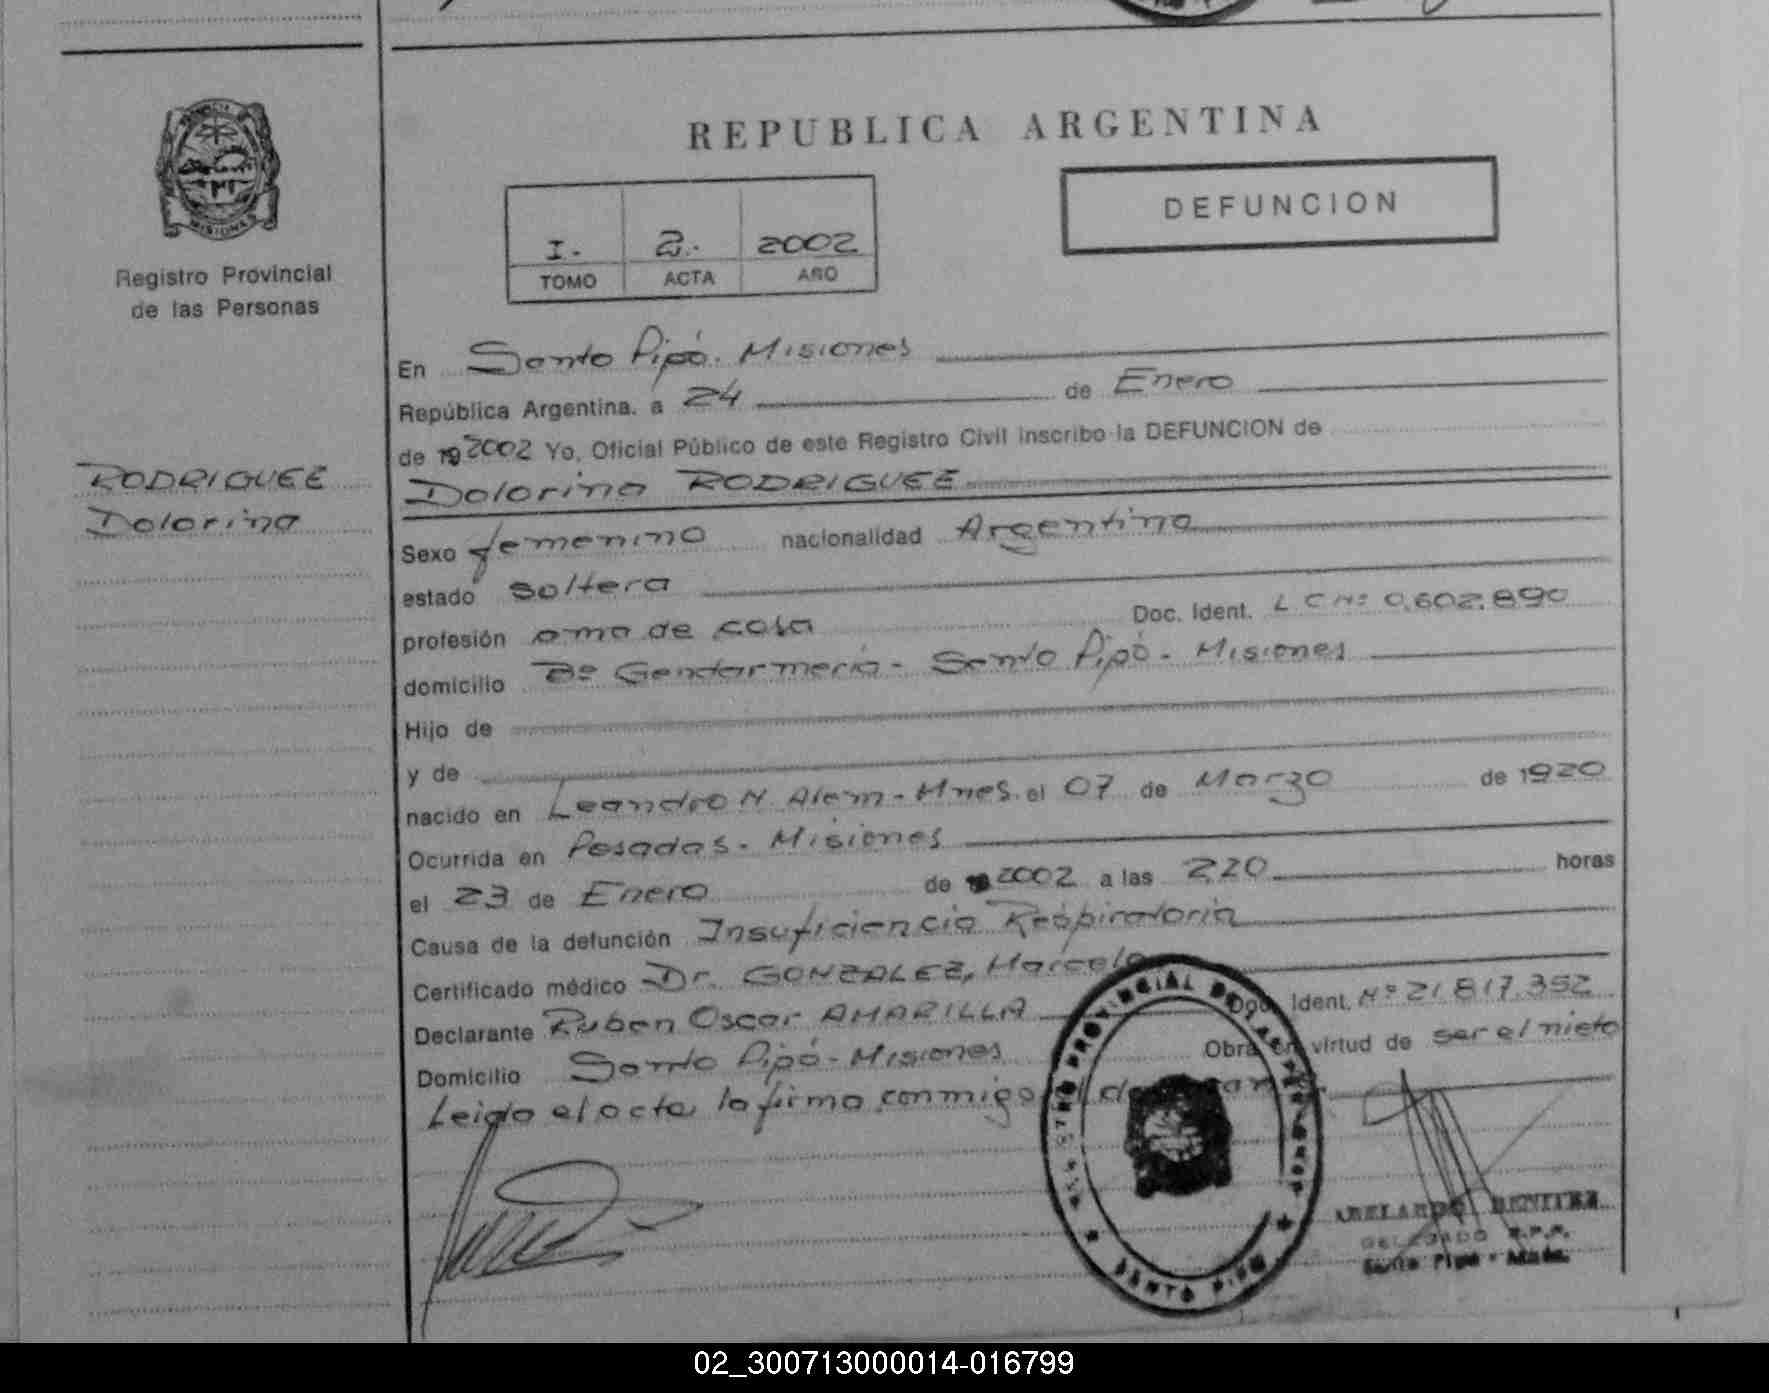 REPUBLICA ARGENTINA
DEFUNCION
I. 2. 2002
TOMO ACTA AÑO
MISIONES
Registro Provincial
de las Personas
RODRIGUEZ
Dolorina
En Santo Pipó. Misiones
República Argentina, a 24 de Enero
de 19 2002 Yo, Oficial Público de este Registro Civil inscribo la DEFUNCION de
Dolorina RODRIGUEZ
Sexo femenino nacionalidad Argentina
estado soltera
profesión ama de casa Doc. Ident. L C Nº 0.602.890
domicilio Bº Gendarmeria - Santo Pipó - Misiones
Hijo de
y de
nacido en Leandro N. Alem - Mnes. el 07 de Marzo de 1920
Ocurrida en Posadas - Misiones
el 23 de Enero de 2002 a las 2,20 horas
Causa de la defunción Insuficiencia Respiratoria
Certificado médico Dr. GONZALEZ, Marcelo
Declarante Ruben Oscar AMARILLA Doc. Ident. Nº 21.817.352
Domicilio Santo Pipó - Misiones Obra en virtud de ser el nieto
Leido el acta, la firma conmigo el declarante.
REGISTRO PROVINCIAL DE LAS PERSONAS
SANTO PIPO
ABELARDO BENITEZ
DELEGADO R.P.P.
Santo Pipó - Mnes.
02_300713000014-016799